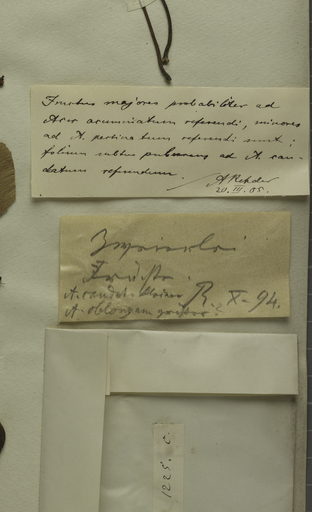 Fructus majores probabiliter ad
Acer acuminatum referendi, minores
ad A. pectinatum referendi sunt;
folium subtus pubescens ad A. cau-
datum referendum.
A Rehder
20. III. 05.
Zweierlei
Früchte.
A. caudat. kleiner
A. oblongum größer?
R. X-94.
1225. c.